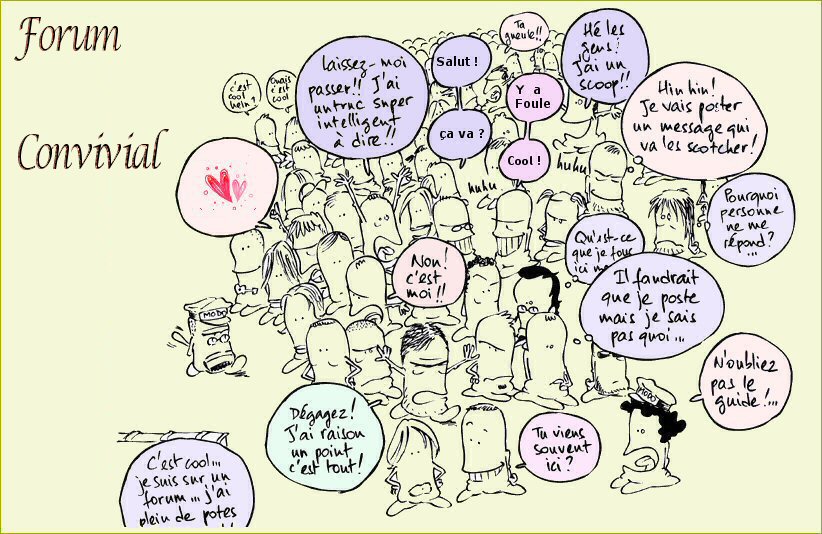 Forum
Convivial
c'est
cool
hein?
Ouais
c'est
cool
Laissez-moi
passer!! J'ai
un truc super
intelligent
à dire!!
Salut !
ça va ?
Ta
gueule!!
Y a
Foule
Cool !
Hé les
gens!
J'ai un
scoop!!
Hin hin!
Je vais poster
un message qui
va les scotcher!
huhu
huhu
Pourquoi
personne
ne me
répond?
...
Qu'est-ce
que je fous
ici
Non!
c'est
moi!!
Il faudrait
que je poste
mais je sais
pas quoi...
MODO
N'oubliez
pas le
guide!...
MODO
Dégagez!
J'ai raison
un point
c'est tout!
Tu viens
souvent
ici?
C'est cool...
je suis sur un
forum... j'ai
plein de potes